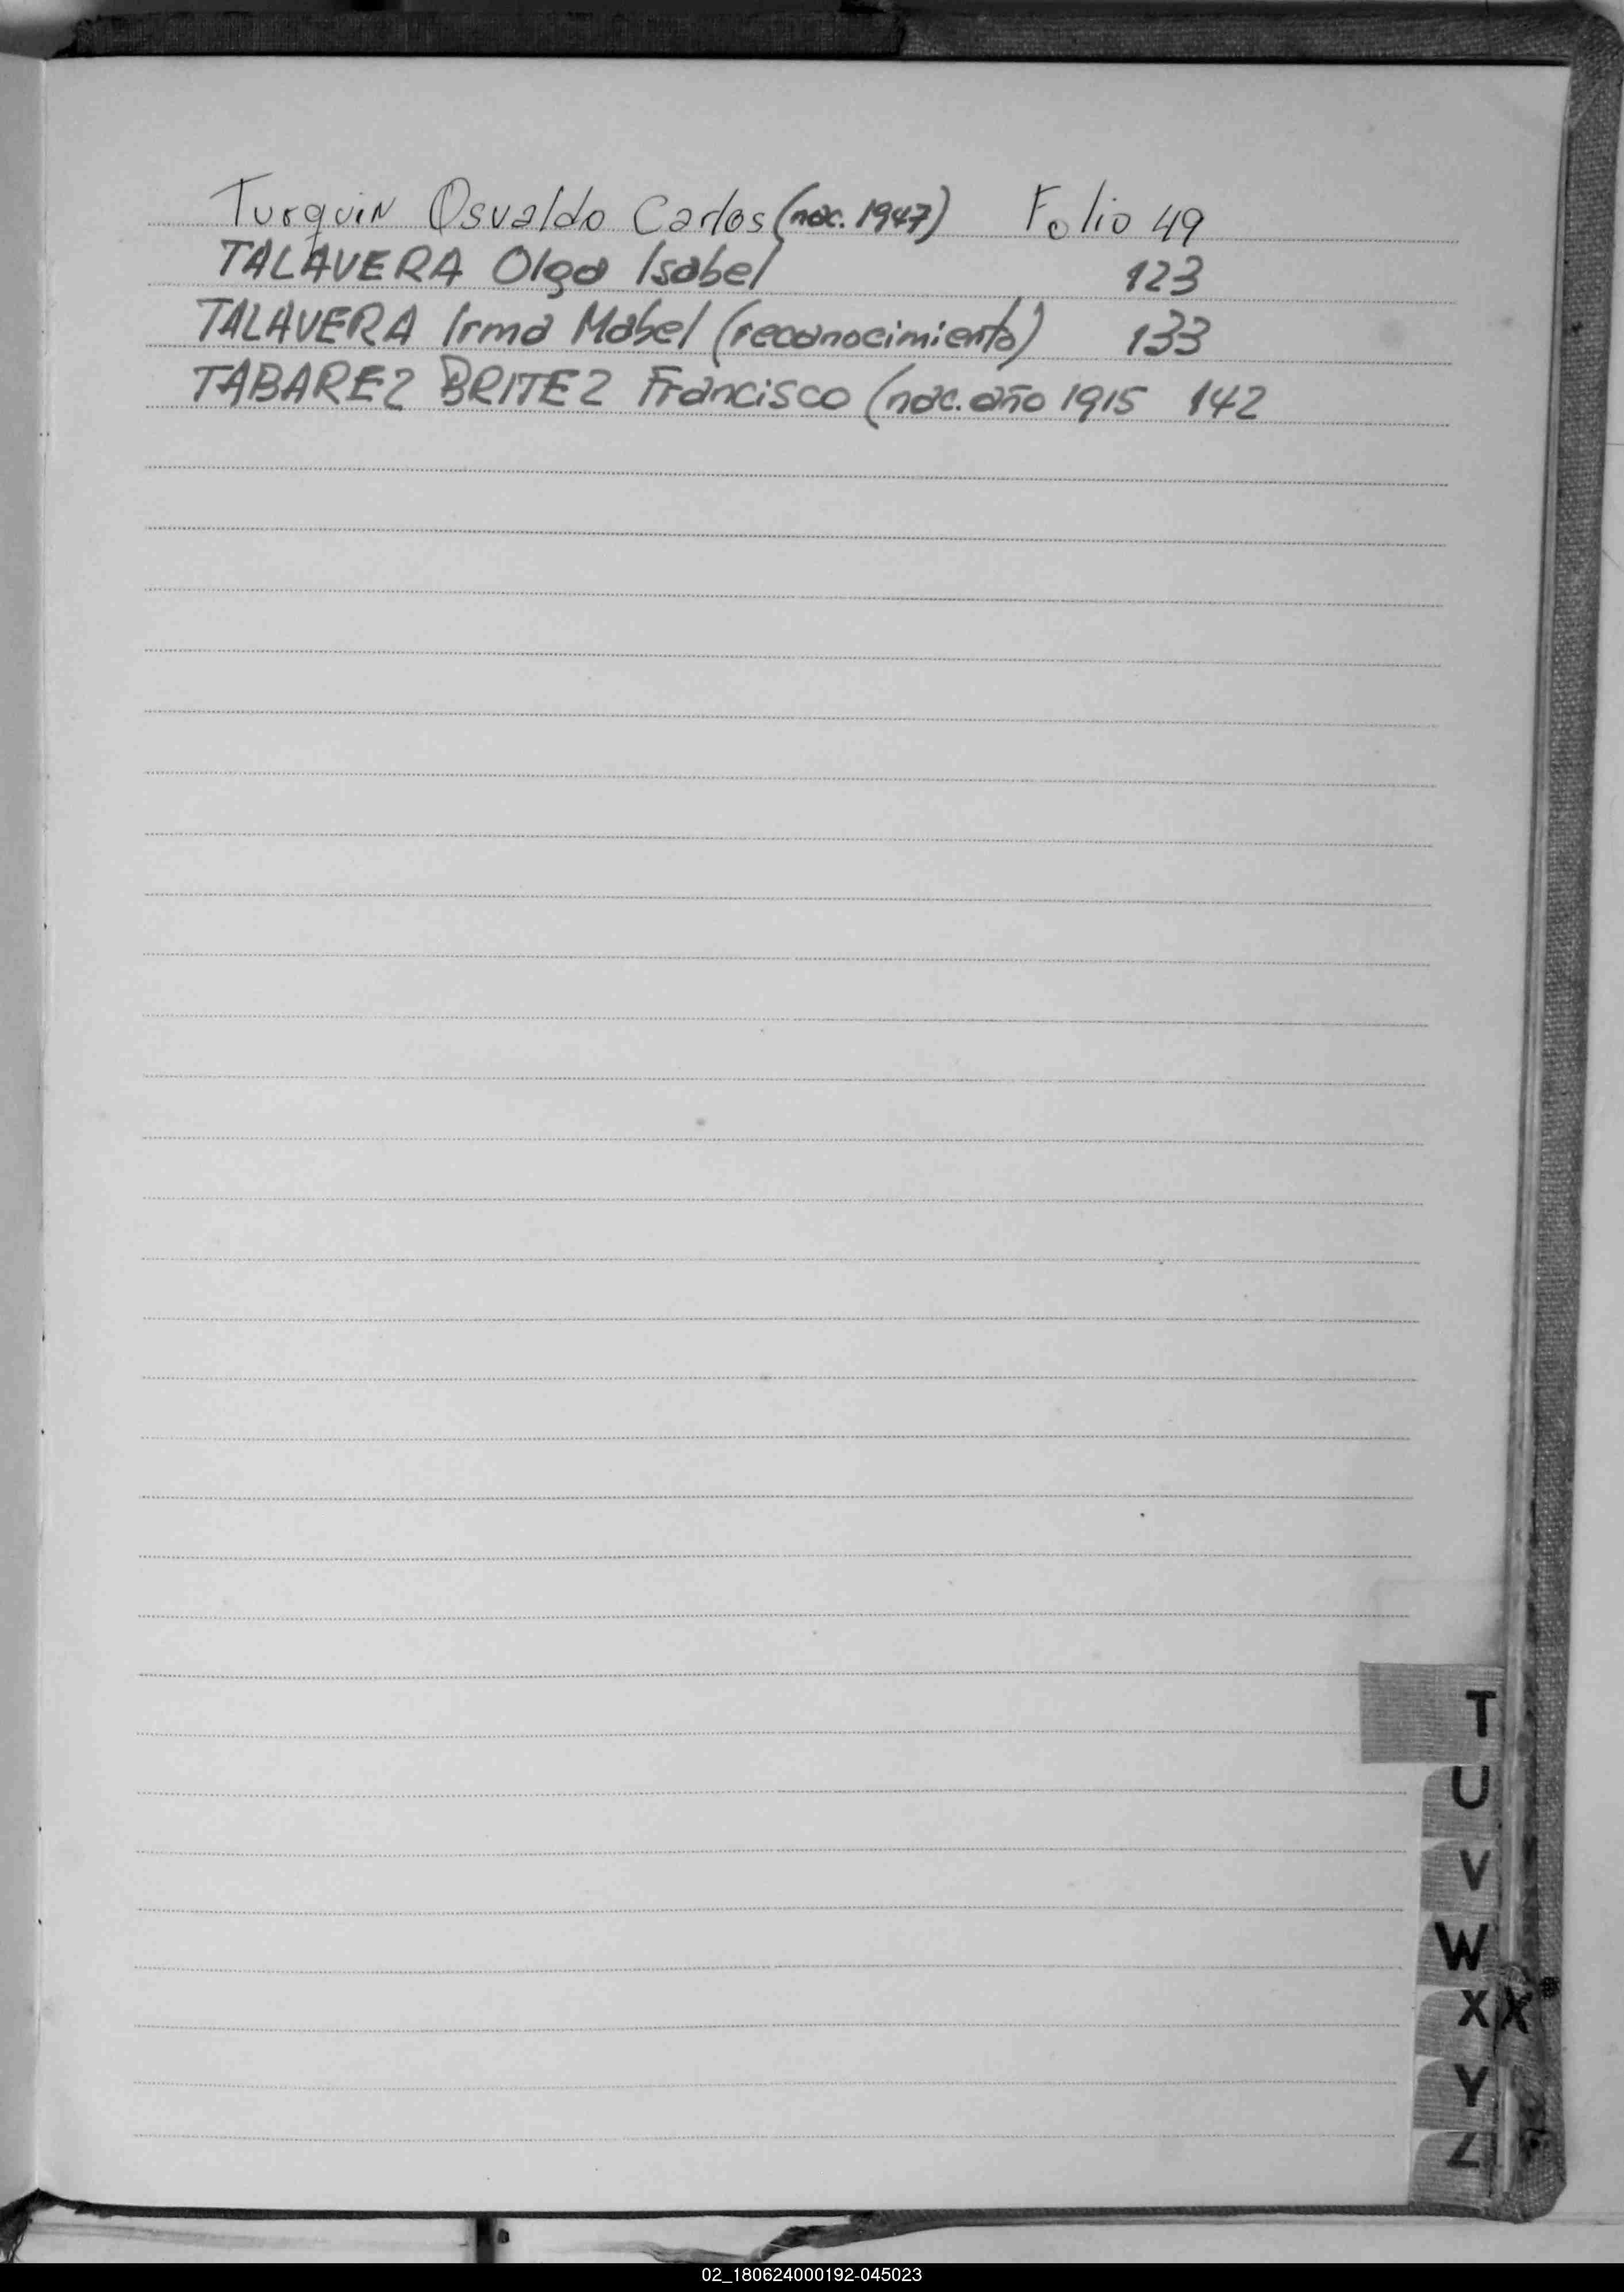 Turquin Osvaldo Carlos (nac. 1947) Folio 49
TALAVERA Olga Isabel 123
TALAVERA Irma Mabel (reconocimiento) 133
TABAREZ BRITEZ Francisco (nac. año 1915 142
T
U
V
W
X X
Y
Z
02_180624000192-045023